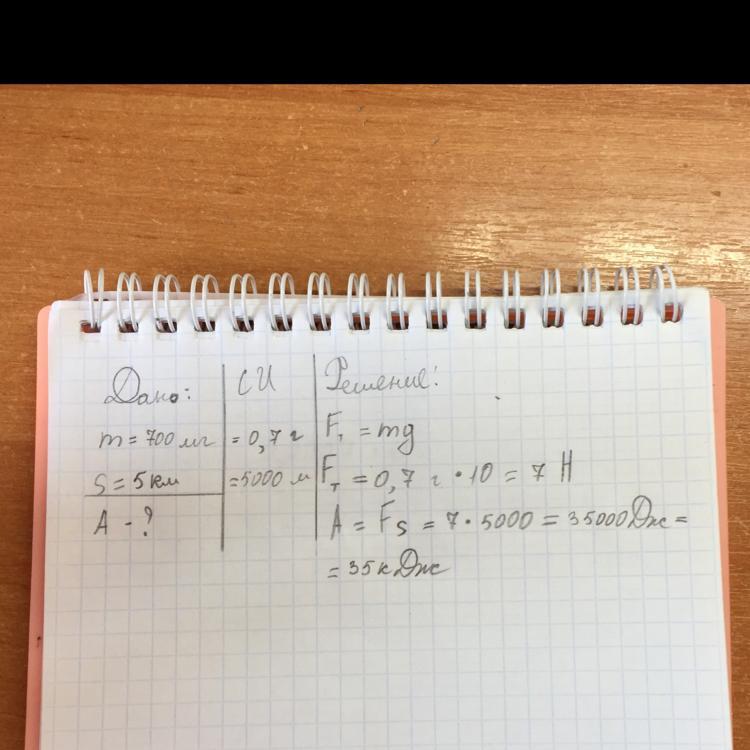 Дано: СИ Решение:
m = 700 мг = 0,7 г Fт = mg
S = 5 км = 5000 м Fт = 0,7 г · 10 = 7 Н
A - ? A = Fs = 7 · 5000 = 35000 Дж =
= 35 кДж